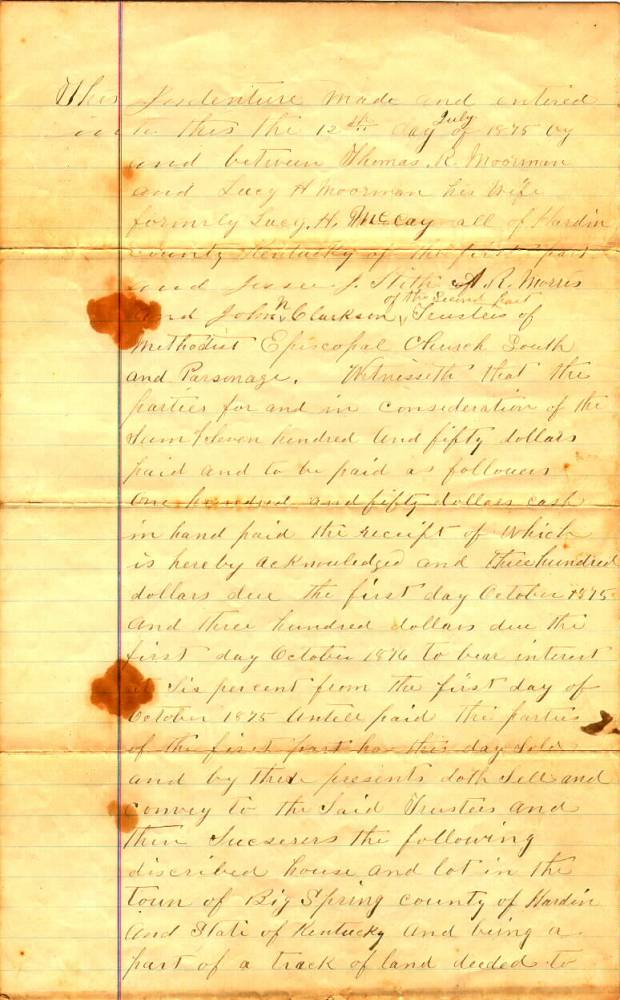 This Indenture made and entered
into this the 12th day of July 1875 by
and between Thomas. R. Moorman
and Lucy H Moorman his Wife
formrly Lucy. H. McCay all of Hardin
county Kentucky of the first part
and Jesse J. Stith A. R. Morris
and John N Clarkson of the Second part Trustees of
Methodist Episcopal Church South
and Parsonage. Witnesseth that the
parties for and in consideration of the
Sum Eleven hundred and fifty dollars
paid and to be paid as follows
One hundred and fifty dollars cash
in hand paid the receipt of which
is hereby acknowledged and three hundred
dollars due the first day October 1875
And three hundred dollars due the
first day October 1876 to bear interest
at Six percent from the first day of
October 1875 Untill paid the parties
of the first part has this day Sold
and by these presents doth Sell and
convey to the Said Trustees and
their Sucserers the following
discribed house and lot in the
town of Big Spring county of Hardin
And State of Kentucky and being a
part of a track of land deeded to